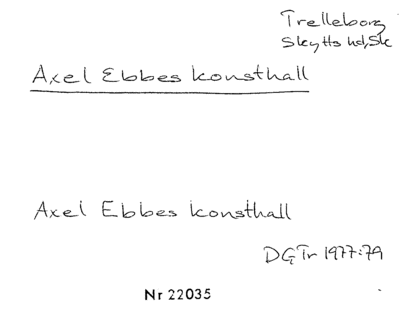 Trelleborg
Skytts hd, Sk
Axel Ebbes konsthall
Axel Ebbes konsthall
DGTr 1977:79
Nr 22035